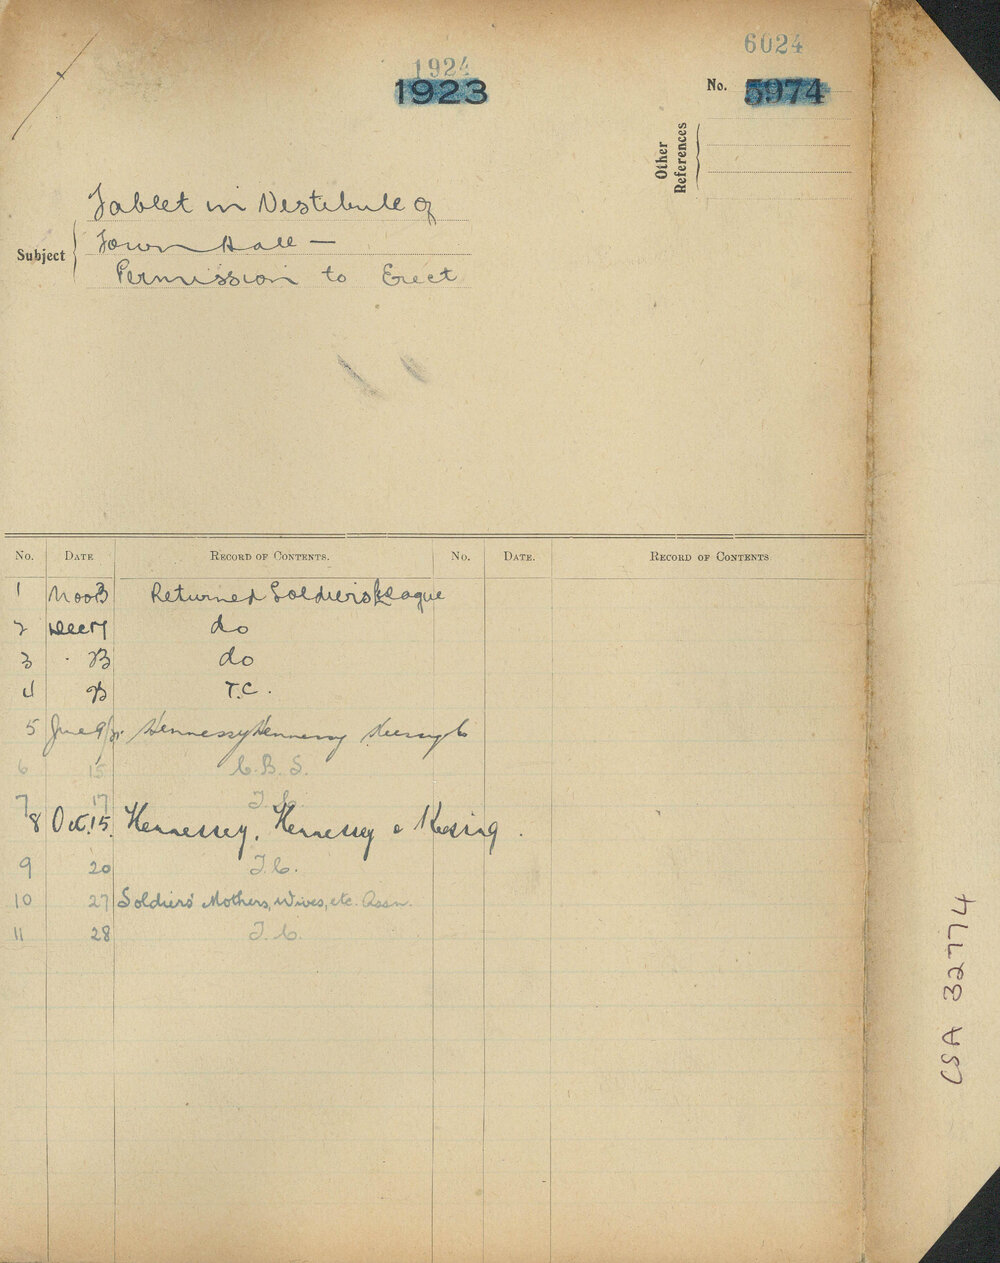 6024
1924
1923
No. 5974
Other References
Subject
Tablet in Vestibule of
Town Hall —
Permission to Erect
No. DATE RECORD OF CONTENTS. No. DATE. RECORD OF CONTENTS
1 Returned Soldiers League
2 Dec 17 do
3 do
4 T.C.
5 Hennessy Hennessy
6 15 C.B.S.
7 17 T.C.
8 Oct. 15. Hennessey, Hennessy & Keesing.
9 20 T.C.
10 27 Soldiers' Mothers, Wives, etc. Assn.
11 28 T.C.
CSA 32774